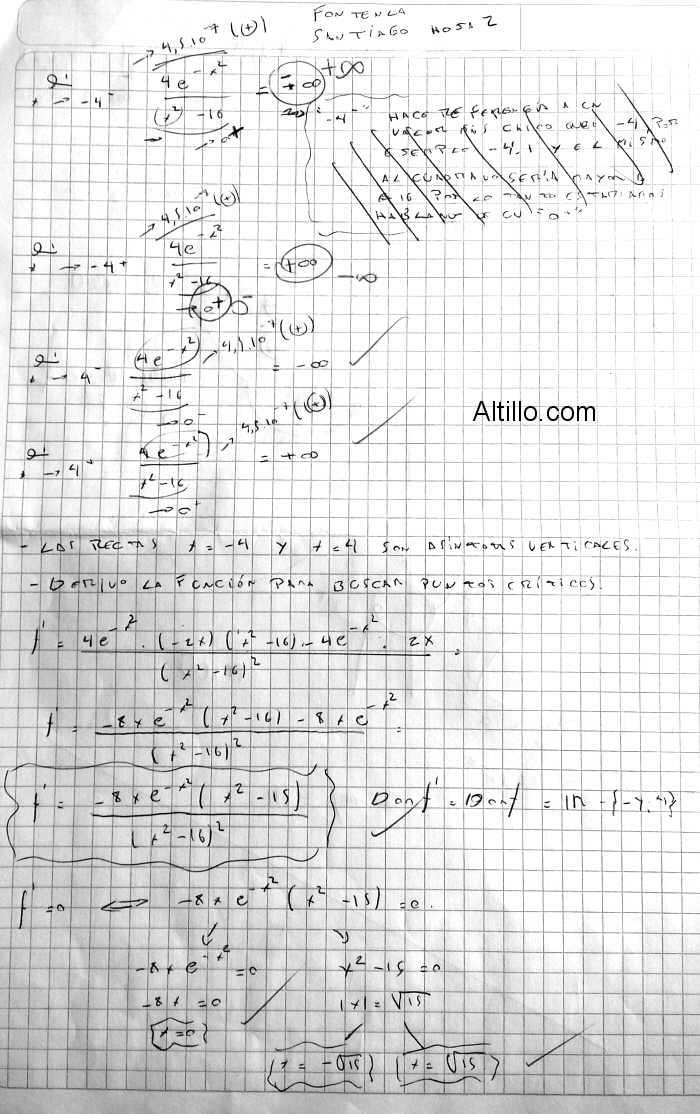 FONTENLA
SANTIAGO HOJA 2
→ 4,5.10⁻⁷ (+)
x → -4⁻ 4e^-x² / x² - 16 = +∞
→ 0⁺
"-4⁻" HACE REFERENCIA A UN
VALOR MÁS CHICO QUE -4, POR
EJEMPLO -4,1 Y EL MISMO
AL CUADRADO SERÍA MAYOR
A 16 POR LO TANTO ESTARÍAMOS
HABLANDO DE UN "0⁺"
→ 4,5.10⁻⁷ (+)
x → -4⁺ 4e^-x² / x² - 16 = +∞ -∞
→ 0⁺ 0⁻
x → 4⁻ 4e^-x² / x² - 16 → 4,5.10⁻⁷ (+) = -∞
→ 0⁻
x → 4⁺ 4e^-x² / x² - 16 → 4,5.10⁻⁷ (+) = +∞
→ 0⁺
Altillo.com
- LAS RECTAS x = -4 Y x = 4 SON ASÍNTOTAS VERTICALES.
- DERIVO LA FUNCIÓN PARA BUSCAR PUNTOS CRÍTICOS.
f' = 4e^-x² . (-2x) (x² - 16) - 4e^-x² . 2x / (x² - 16)² =
f' = -8xe^-x² (x² - 16) - 8xe^-x² / (x² - 16)² =
f' = -8xe^-x² (x² - 15) / (x² - 16)² Dom f' = Dom f = IR - {-4, 4}
f' = 0 ⟺ -8xe^-x² (x² - 15) = 0.
-8xe^-x² = 0 x² - 15 = 0
-8x = 0 |x| = √15
x = 0
x = -√15 x = √15